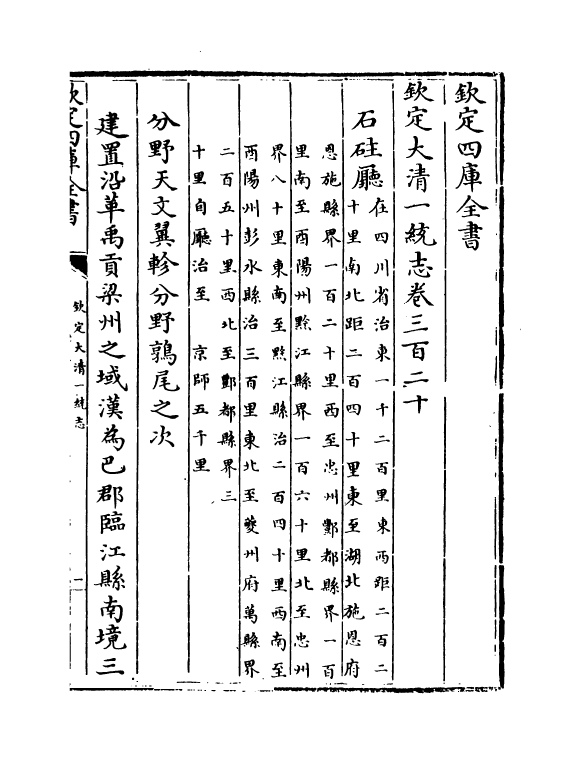 欽定四庫全書
欽定大清一統志卷三百二十
石砫廳在四川省治東一千二百里東西距二百二
十里南北距二百四十里東至湖北施恩府
恩施縣界一百二十里西至忠州酆都縣界一百
里南至酉陽州黔江縣界一百六十里北至忠州
界八十里東南至黔江縣治二百四十里西南至
酉陽州彭水縣治三百里東北至夔州府萬縣界
二百五十里西北至酆都縣界三
十里自廳治至 京師五千里
分野天文翼軫分野鶉尾之次
建置沿革禹貢梁州之域漢為巴郡臨江縣南境三
欽定四庫全書
欽定大清一統志